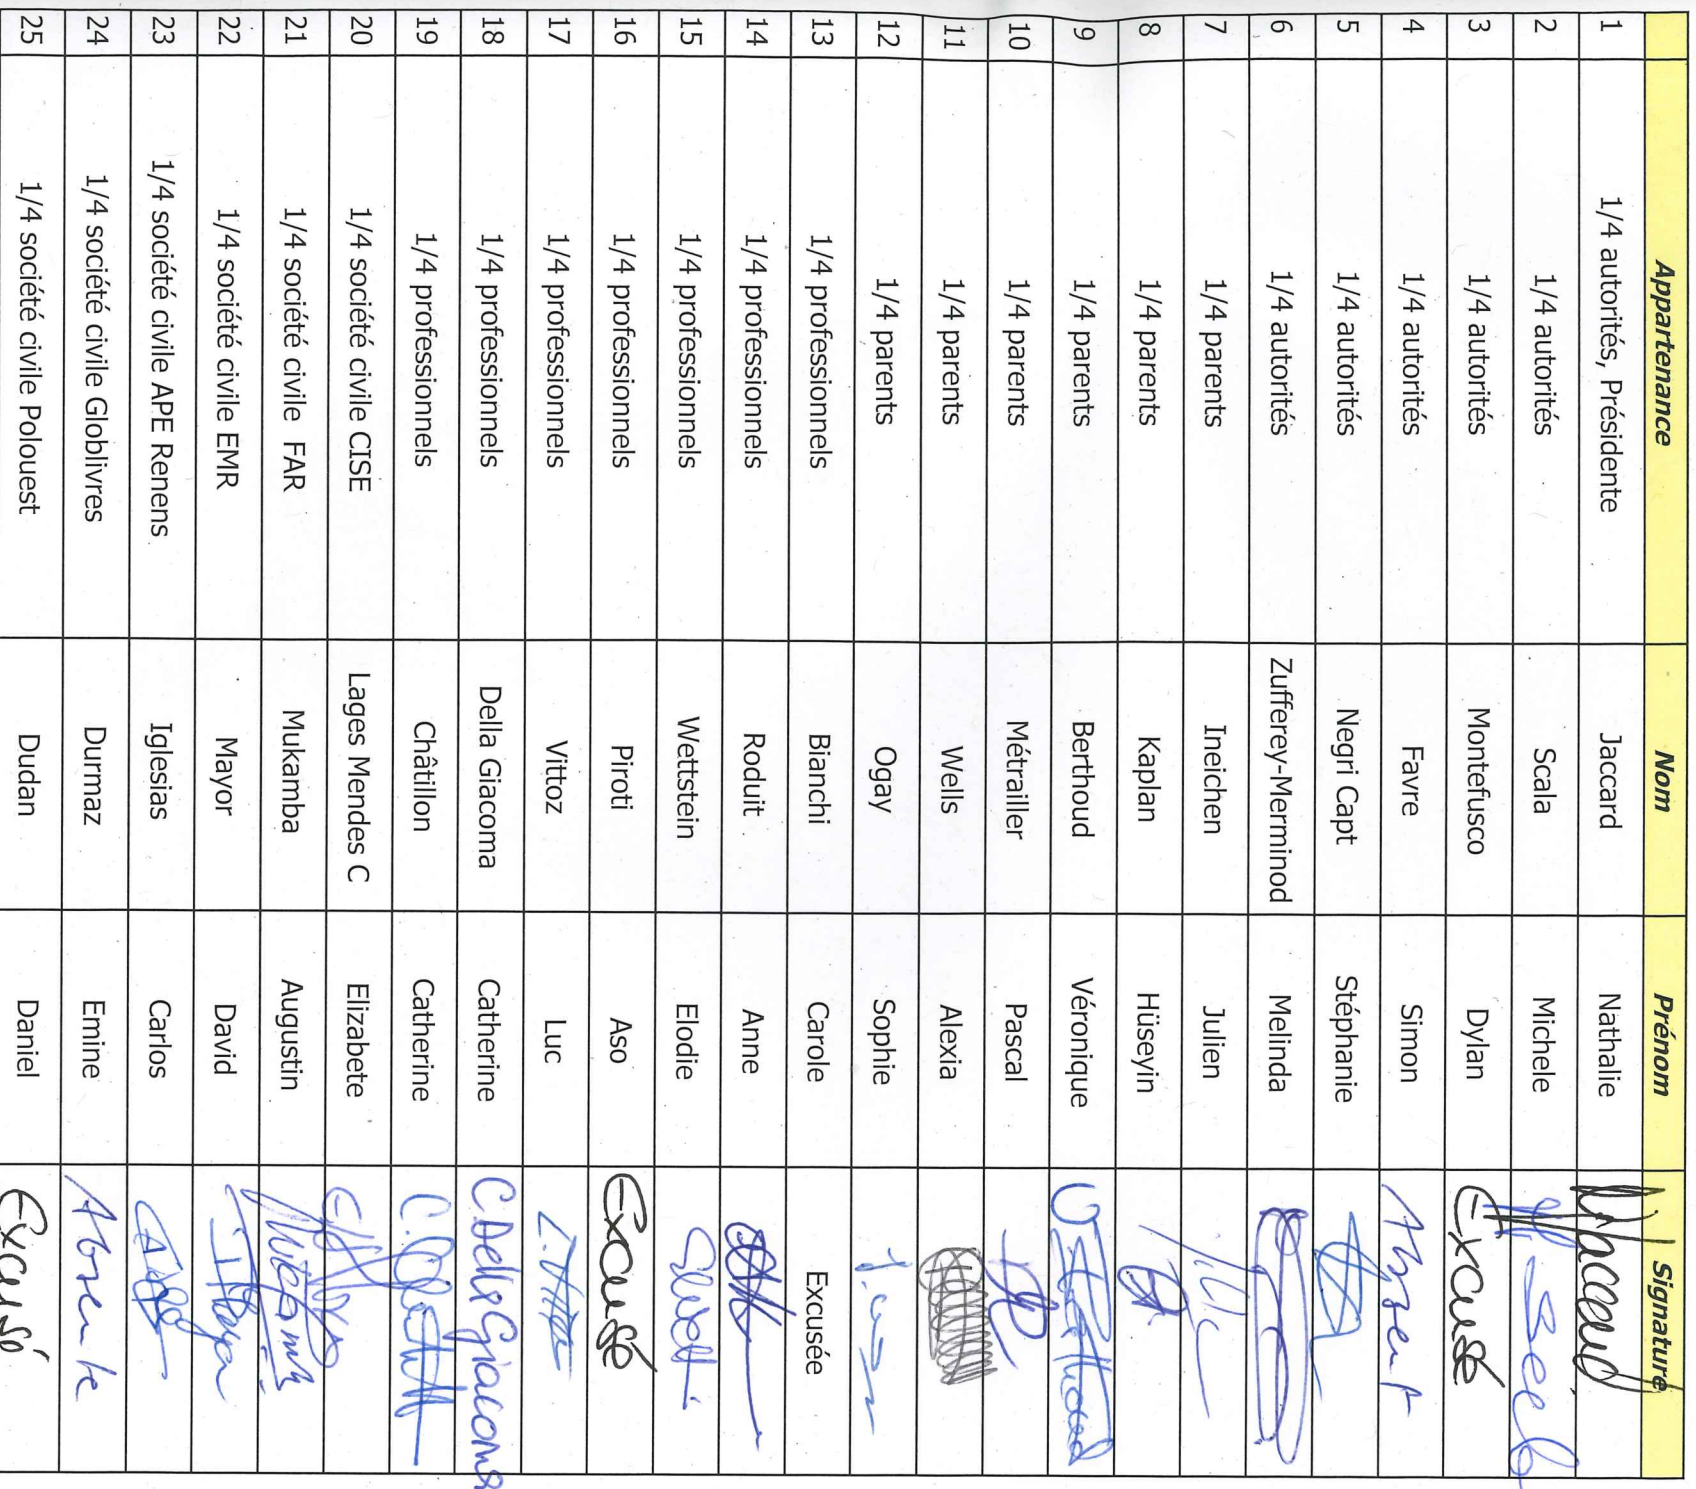 Appartenance Nom Prénom Signature
1 1/4 autorités, Présidente Jaccard Nathalie NJaccard
2 1/4 autorités Scala Michele
3 1/4 autorités Montefusco Dylan Excusé
4 1/4 autorités Favre Simon Absent
5 1/4 autorités Negri Capt Stéphanie
6 1/4 autorités Zufferey-Merminod Melinda
7 1/4 parents Ineichen Julien
8 1/4 parents Kaplan Hüseyin
9 1/4 parents Berthoud Véronique
10 1/4 parents Métrailler Pascal
11 1/4 parents Wells Alexia
12 1/4 parents Ogay Sophie
13 1/4 professionnels Bianchi Carole Excusée
14 1/4 professionnels Roduit Anne
15 1/4 professionnels Wettstein Elodie
16 1/4 professionnels Piroti Aso Excusé
17 1/4 professionnels Vittoz Luc
18 1/4 professionnels Della Giacoma Catherine C.Della Giacoma
19 1/4 professionnels Châtillon Catherine
20 1/4 société civile CISE Lages Mendes C Elizabete
21 1/4 société civile FAR Mukamba Augustin
22 1/4 société civile EMR Mayor David
23 1/4 société civile APE Renens Iglesias Carlos
24 1/4 société civile Globlivres Durmaz Emine Absente
25 1/4 société civile Polouest Dudan Daniel Excusé